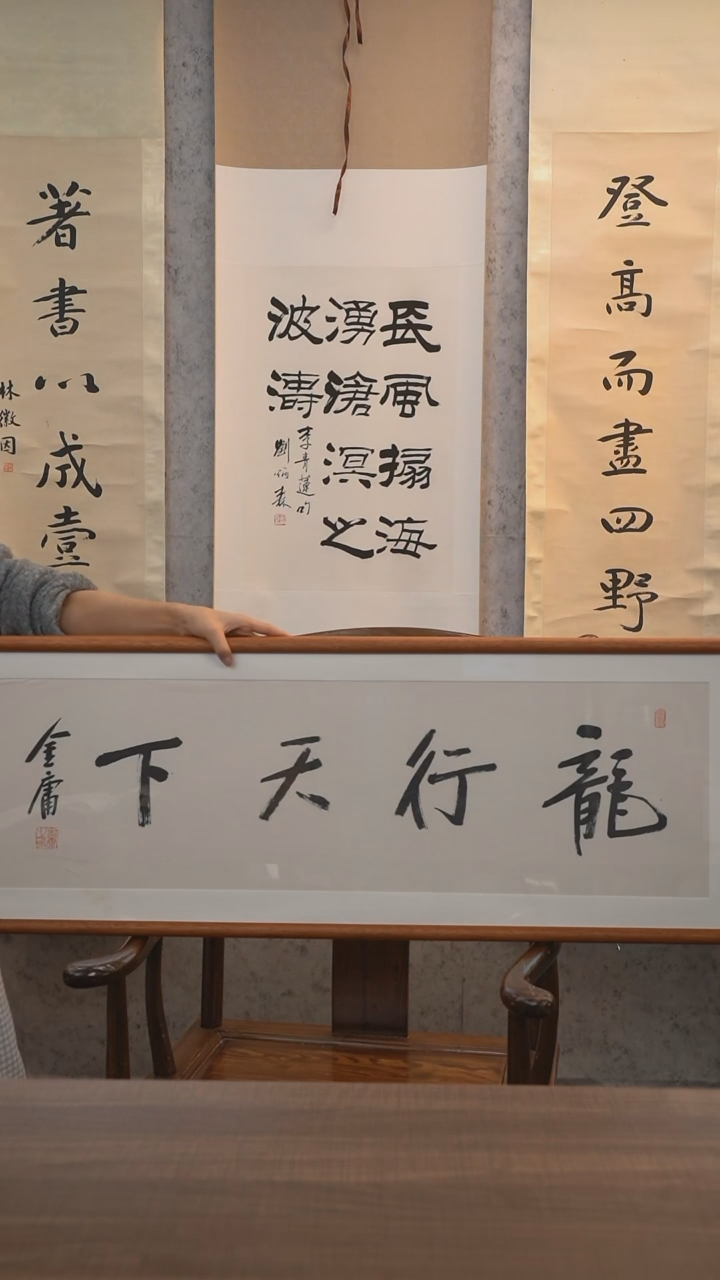 登高而盡四野
長風搧海
湧滄溟之
波濤
李青蓮句
劉炳森
著書以成壹
林徽因
龍行天下
金庸